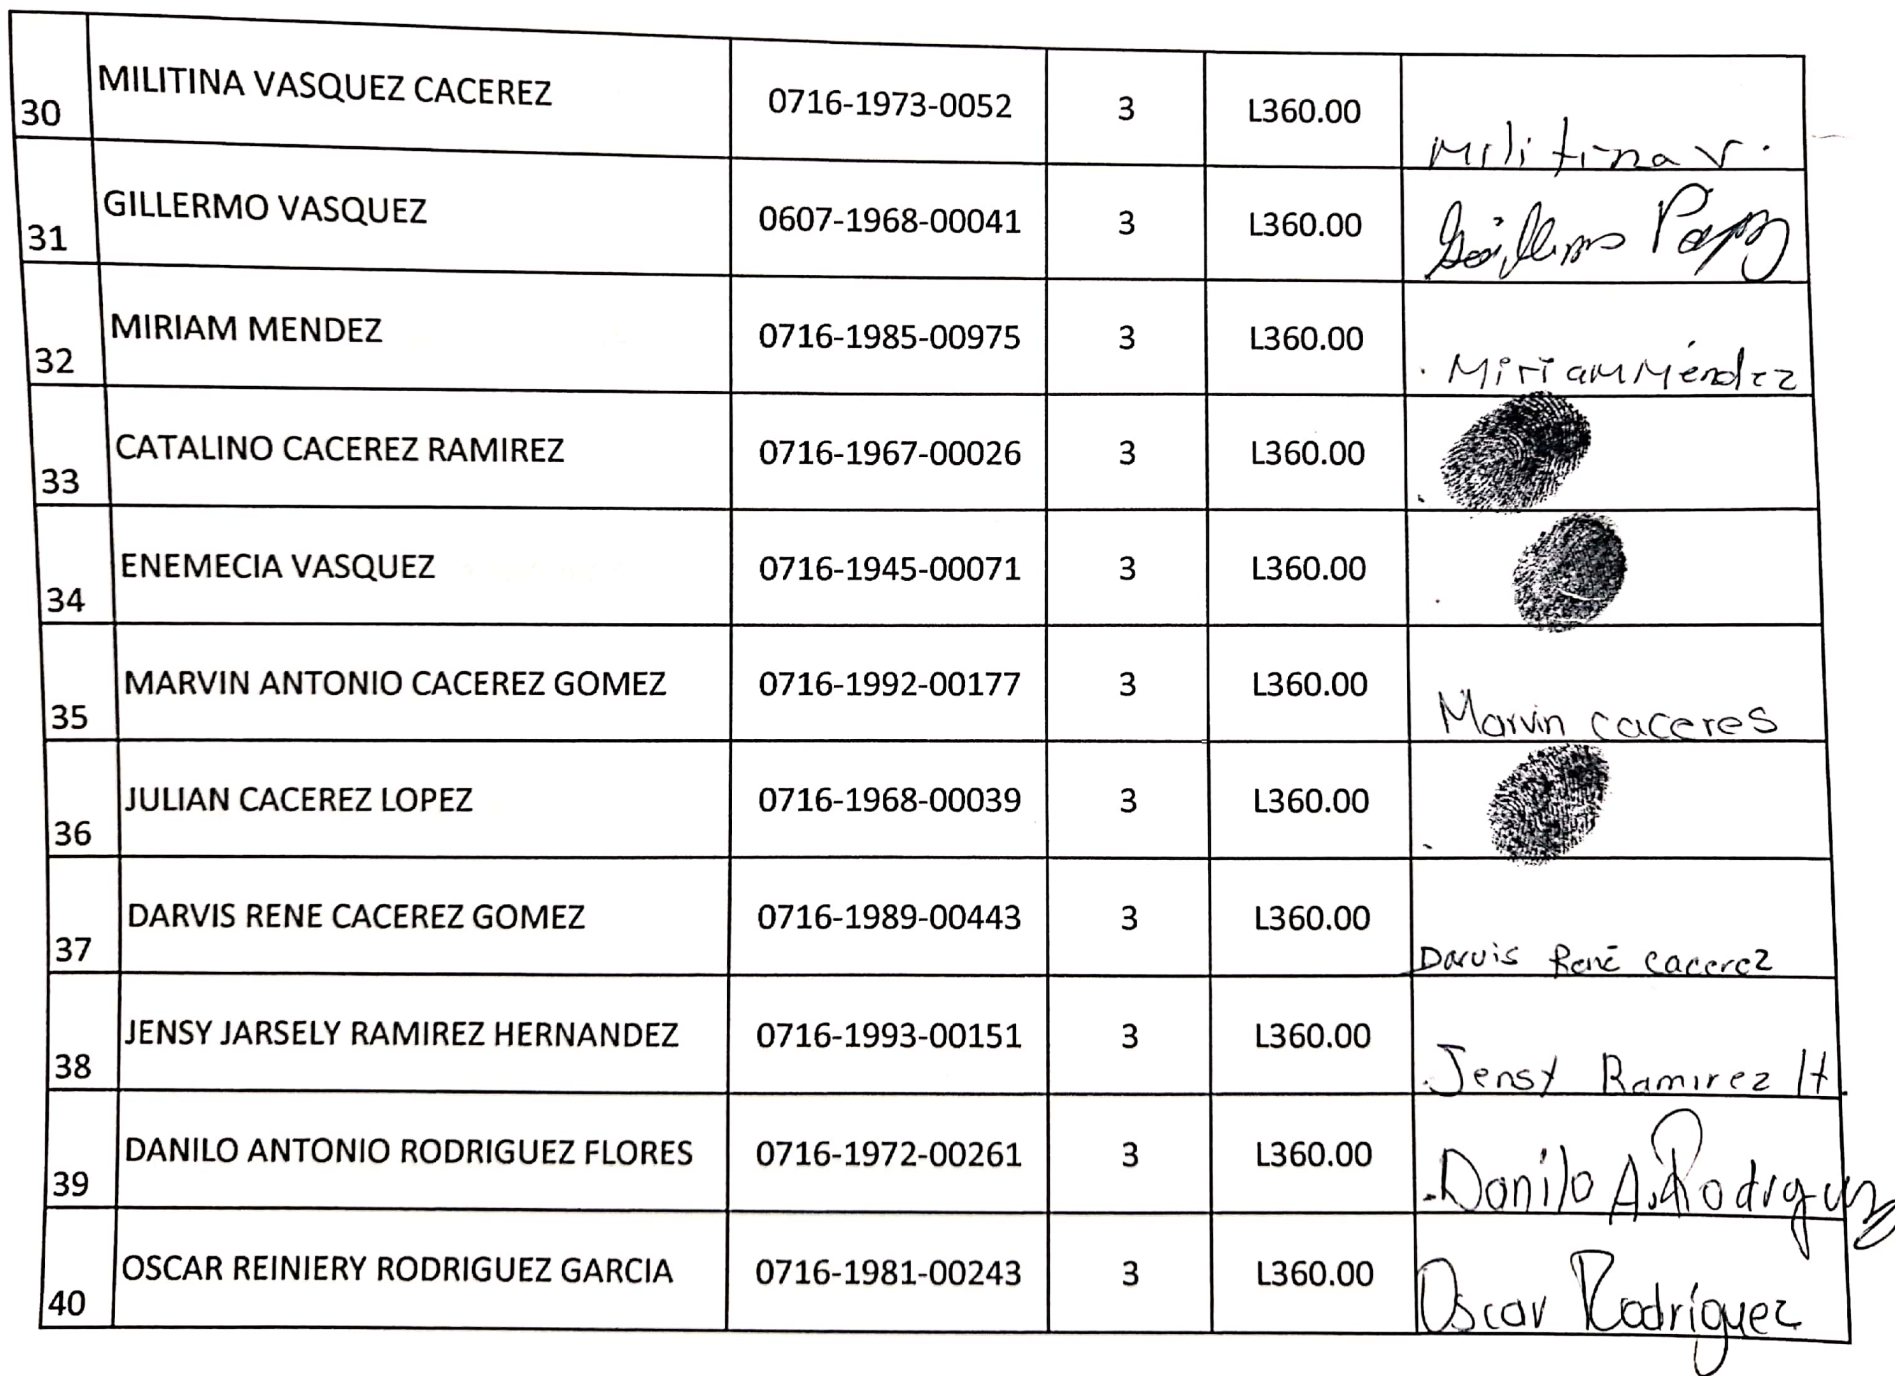 30 MILITINA VASQUEZ CACEREZ 0716-1973-0052 3 L360.00 Militina V.
31 GILLERMO VASQUEZ 0607-1968-00041 3 L360.00
32 MIRIAM MENDEZ 0716-1985-00975 3 L360.00 Miriam Méndez
33 CATALINO CACEREZ RAMIREZ 0716-1967-00026 3 L360.00
34 ENEMECIA VASQUEZ 0716-1945-00071 3 L360.00
35 MARVIN ANTONIO CACEREZ GOMEZ 0716-1992-00177 3 L360.00 Marvin caceres
36 JULIAN CACEREZ LOPEZ 0716-1968-00039 3 L360.00
37 DARVIS RENE CACEREZ GOMEZ 0716-1989-00443 3 L360.00 Darvis René cacerez
38 JENSY JARSELY RAMIREZ HERNANDEZ 0716-1993-00151 3 L360.00 Jensy Ramirez H.
39 DANILO ANTONIO RODRIGUEZ FLORES 0716-1972-00261 3 L360.00 Danilo A. Rodriguez
40 OSCAR REINIERY RODRIGUEZ GARCIA 0716-1981-00243 3 L360.00 Oscar Rodríguez